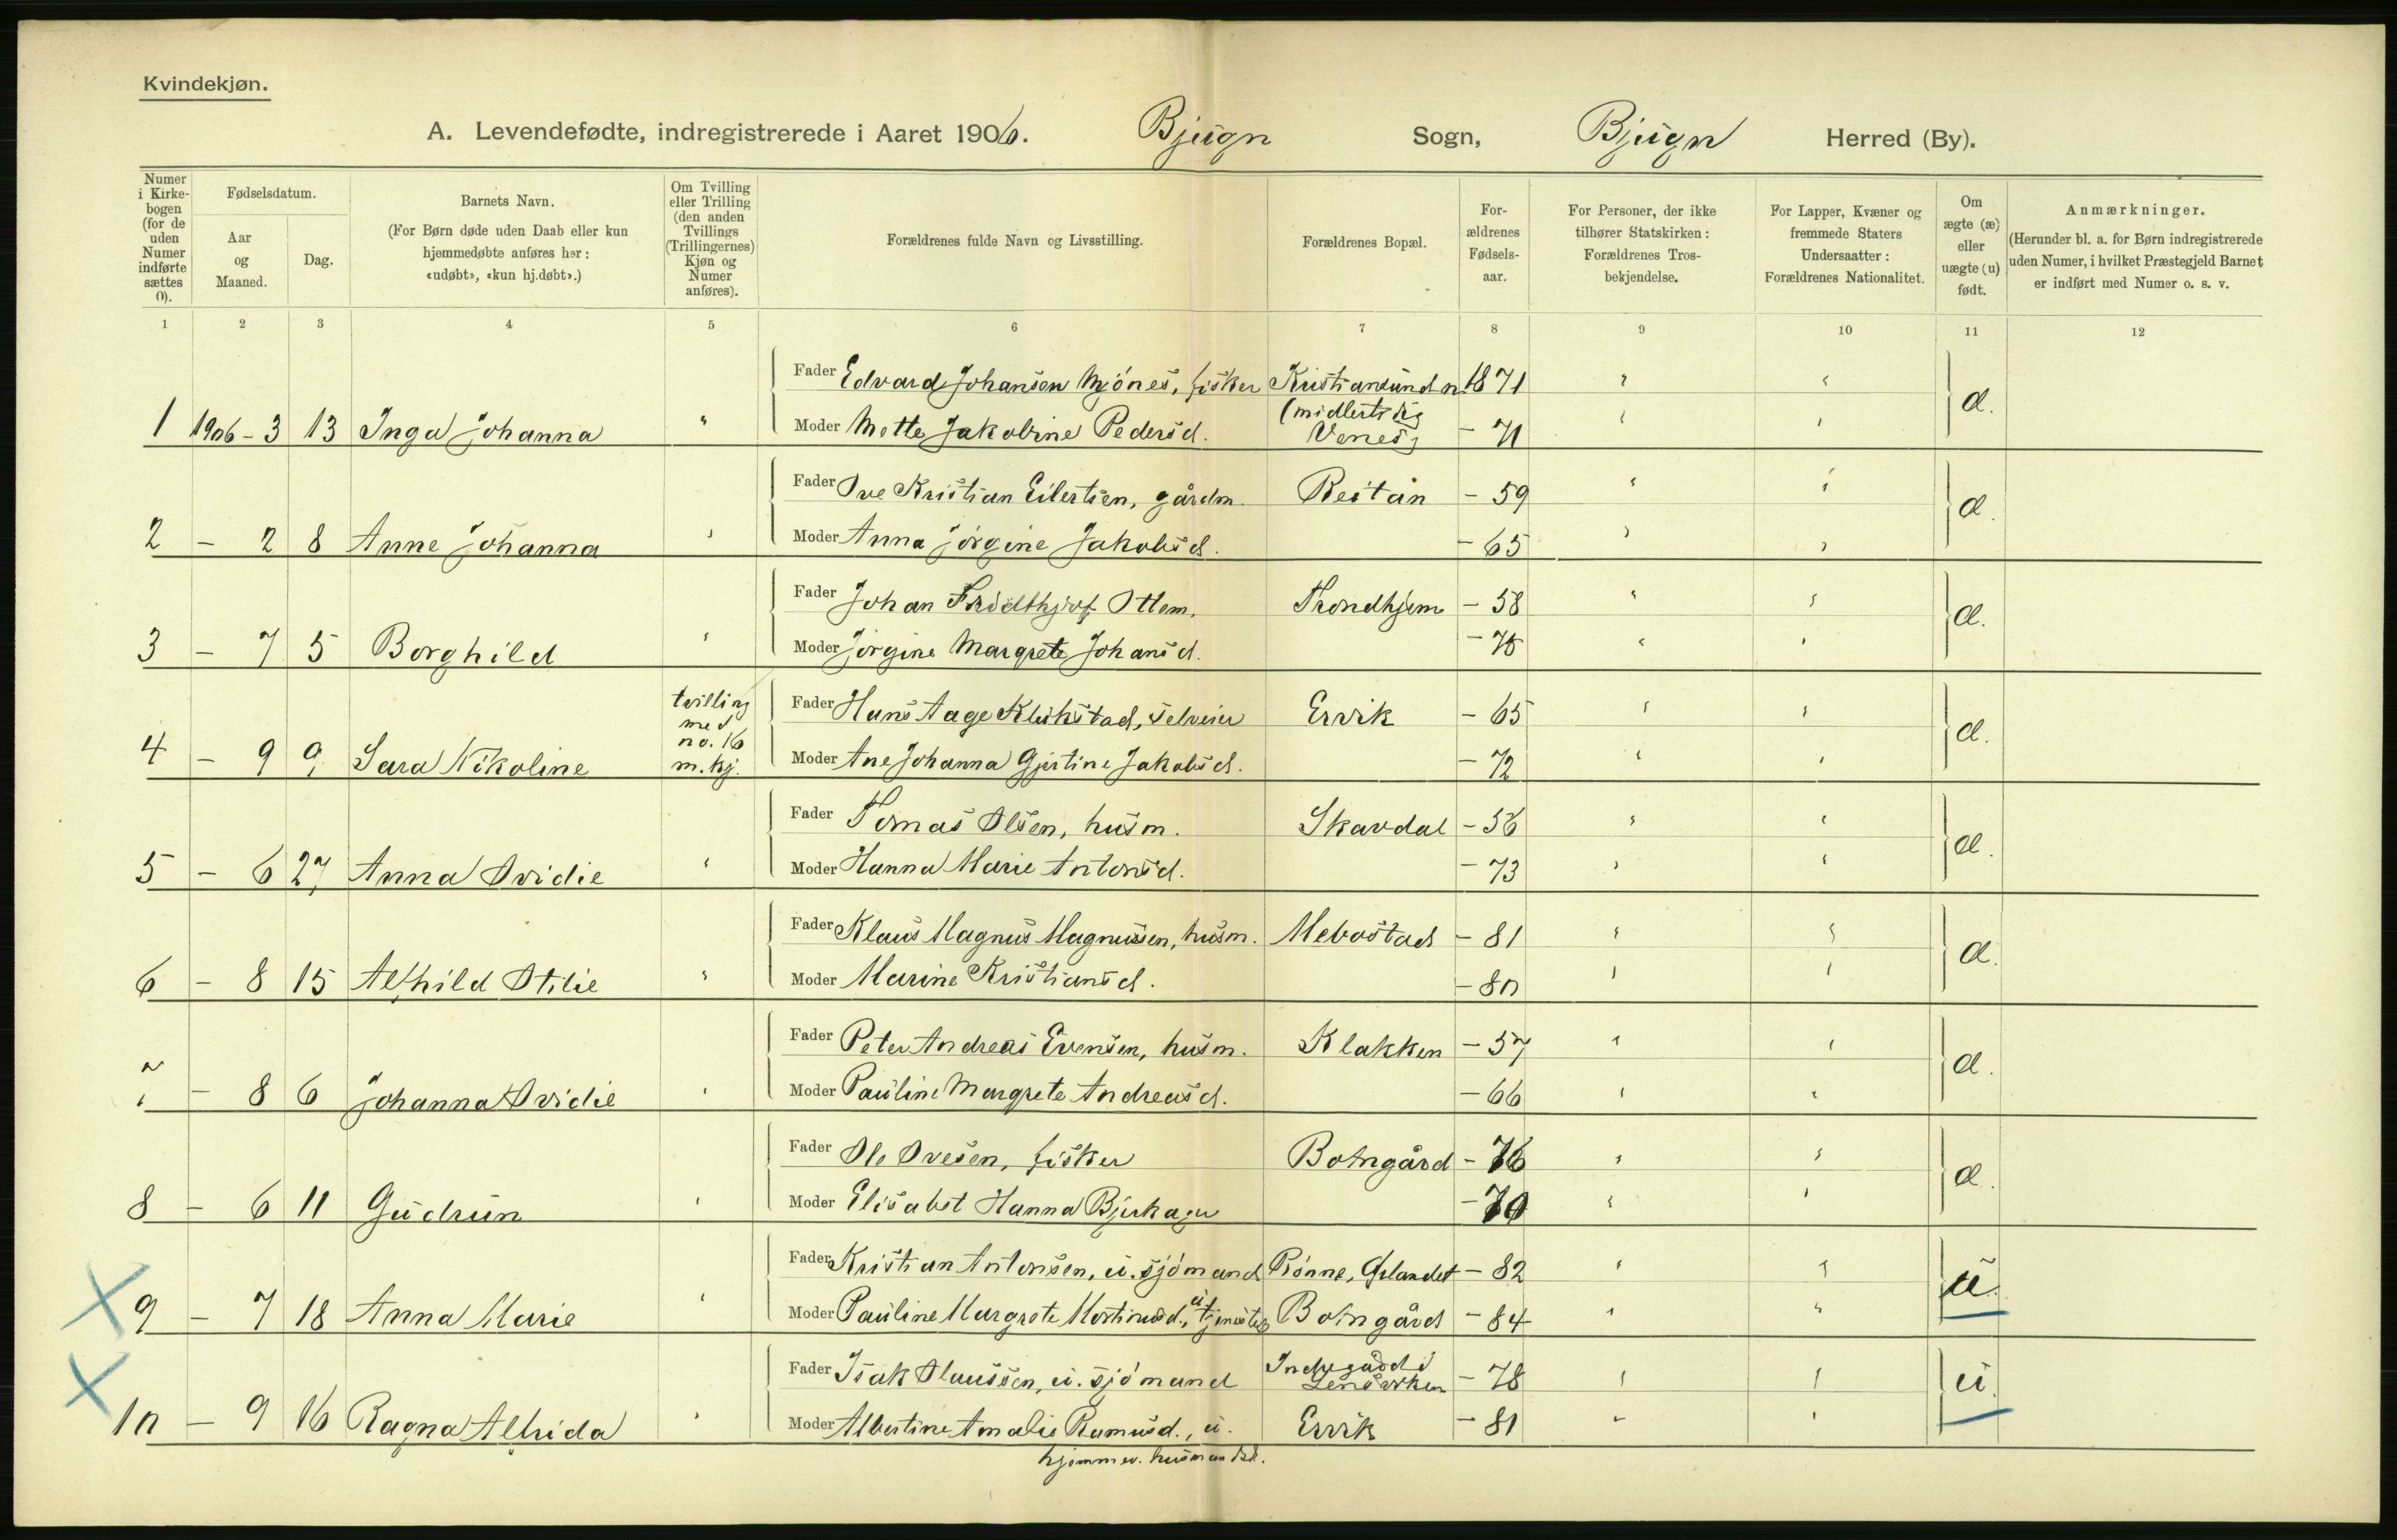 Kvindekjøn.
A. Levendefødte, indregistrerede i Aaret 1906. Bjugn Sogn, Bjugn Herred (By).
Numer i Kirke-bogen (for de uden Numer indførte sættes 0).
Fødselsdatum.
Aar og Maaned.
Dag.
Barnets Navn.
(For Børn døde uden Daab eller kun hjemmedøbte anføres her: «udøbt», «kun hj.døbt».)
Om Tvilling eller Trilling (den anden Tvillings (Trillingernes) Kjøn og Numer anføres).
Forældrenes fulde Navn og Livsstilling.
Forældrenes Bopæl.
For-ældrenes Fødsels-aar.
For Personer, der ikke tilhører Statskirken: Forældrenes Tros-bekjendelse.
For Lapper, Kvæner og fremmede Staters Undersaatter: Forældrenes Nationalitet.
Om ægte (æ) eller uægte (u) født.
Anmærkninger.
(Herunder bl. a. for Børn indregistrerede uden Numer, i hvilket Præstegjeld Barnet er indført med Numer o. s. v.
1 2 3 4 5 6 7 8 9 10 11 12
Fader Edvard Johansen Mjönes, fisker Kristiansund n. 1871 " "
1 1906-3 13 Inga Johanna " Moder Mette Jakobine Pedersd. (midlertidig Venes) - 71 " " æ.
Fader Ove Kristian Eilertsen, gårdm. Reitan - 59 " "
2 - 2 8 Anne Johanna " Moder Anna Jörgine Jakobsd. - 65 " " æ.
Fader Johan Fridthjof Ottem. Trondhjem - 58 " "
3 - 7 5 Borghild " Moder Jörgine Margrete Johansd. - 78 " " æ.
Fader Hans Aage Klükstad, selveier Ervik - 65 " "
4 - 9 9 Sara Nikoline tvilling med no. 16 m. kj. Moder Ane Johanna Gjertine Jakobsd. - 72 " " æ.
Fader Tomas Olsen, husm. Skavdal - 56 " "
5 - 6 27 Anna Ovidie " Moder Hanna Marie Antonsd. - 73 " " æ.
Fader Klaus Magnus Magnussen, husm. Mebostad - 81 " "
6 - 8 15 Alfhild Otilie " Moder Marine Kristiansd. - 80 " " æ.
Fader Peter Andreas Evensen, husm. Klakken - 57 " "
7 - 8 6 Johanna Ovidie " Moder Pauline Margrete Andreasd. - 66 " " æ.
Fader Ole Ovesen, fisker Botngård - 76 " "
8 - 6 11 Gudrun " Moder Elisabet Hanna Bjerkager - 70 " " æ.
Fader Kristian Antonsen, u. sjömand Rönne, Ørlandet - 82 " "
9 - 7 18 Anna Marie " Moder Pauline Margrete Mortinusd., u. Botngård - 84 " " u.
Fader Isak Olaussen, u. sjömand - 78 " "
10 - 9 16 Ragna Alfrida " Moder Albertine Amalie Rasmusd., u. Ervik - 81 " " u.
hjemmev. husmandsd.